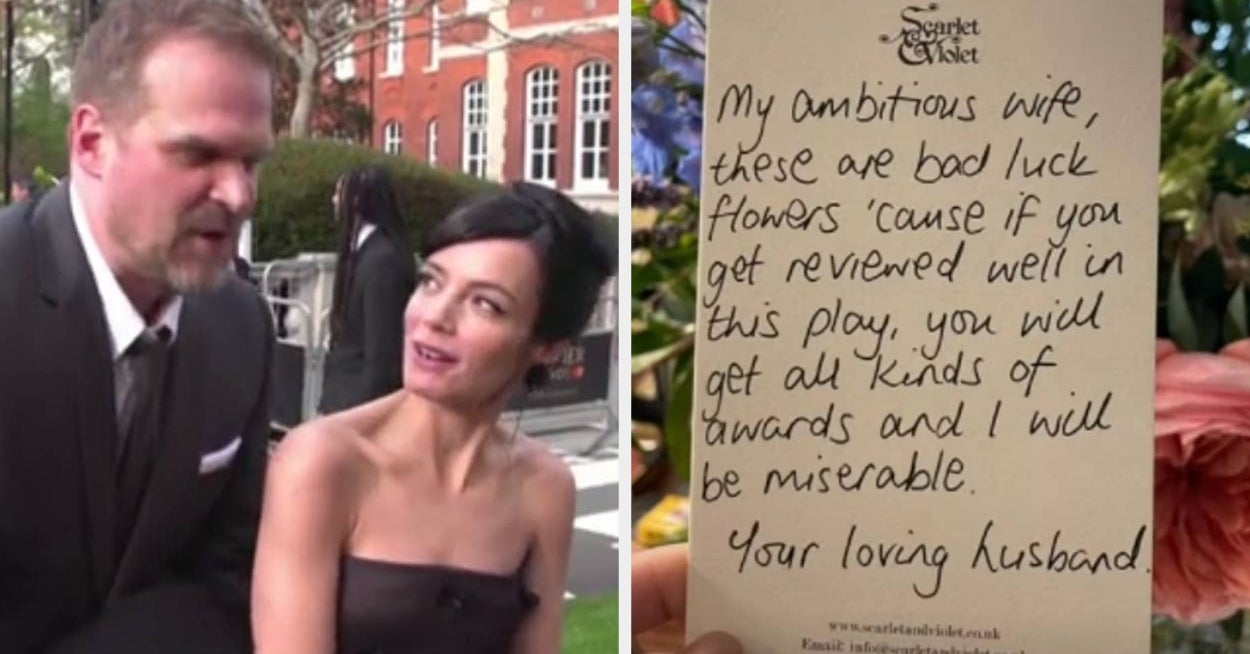 Scarlet
& Violet
My ambitious wife,
these are bad luck
flowers 'cause if you
get reviewed well in
this play, you will
get all kinds of
awards and I will
be miserable.
Your loving husband.
www.scarletandviolet.co.uk
Email: